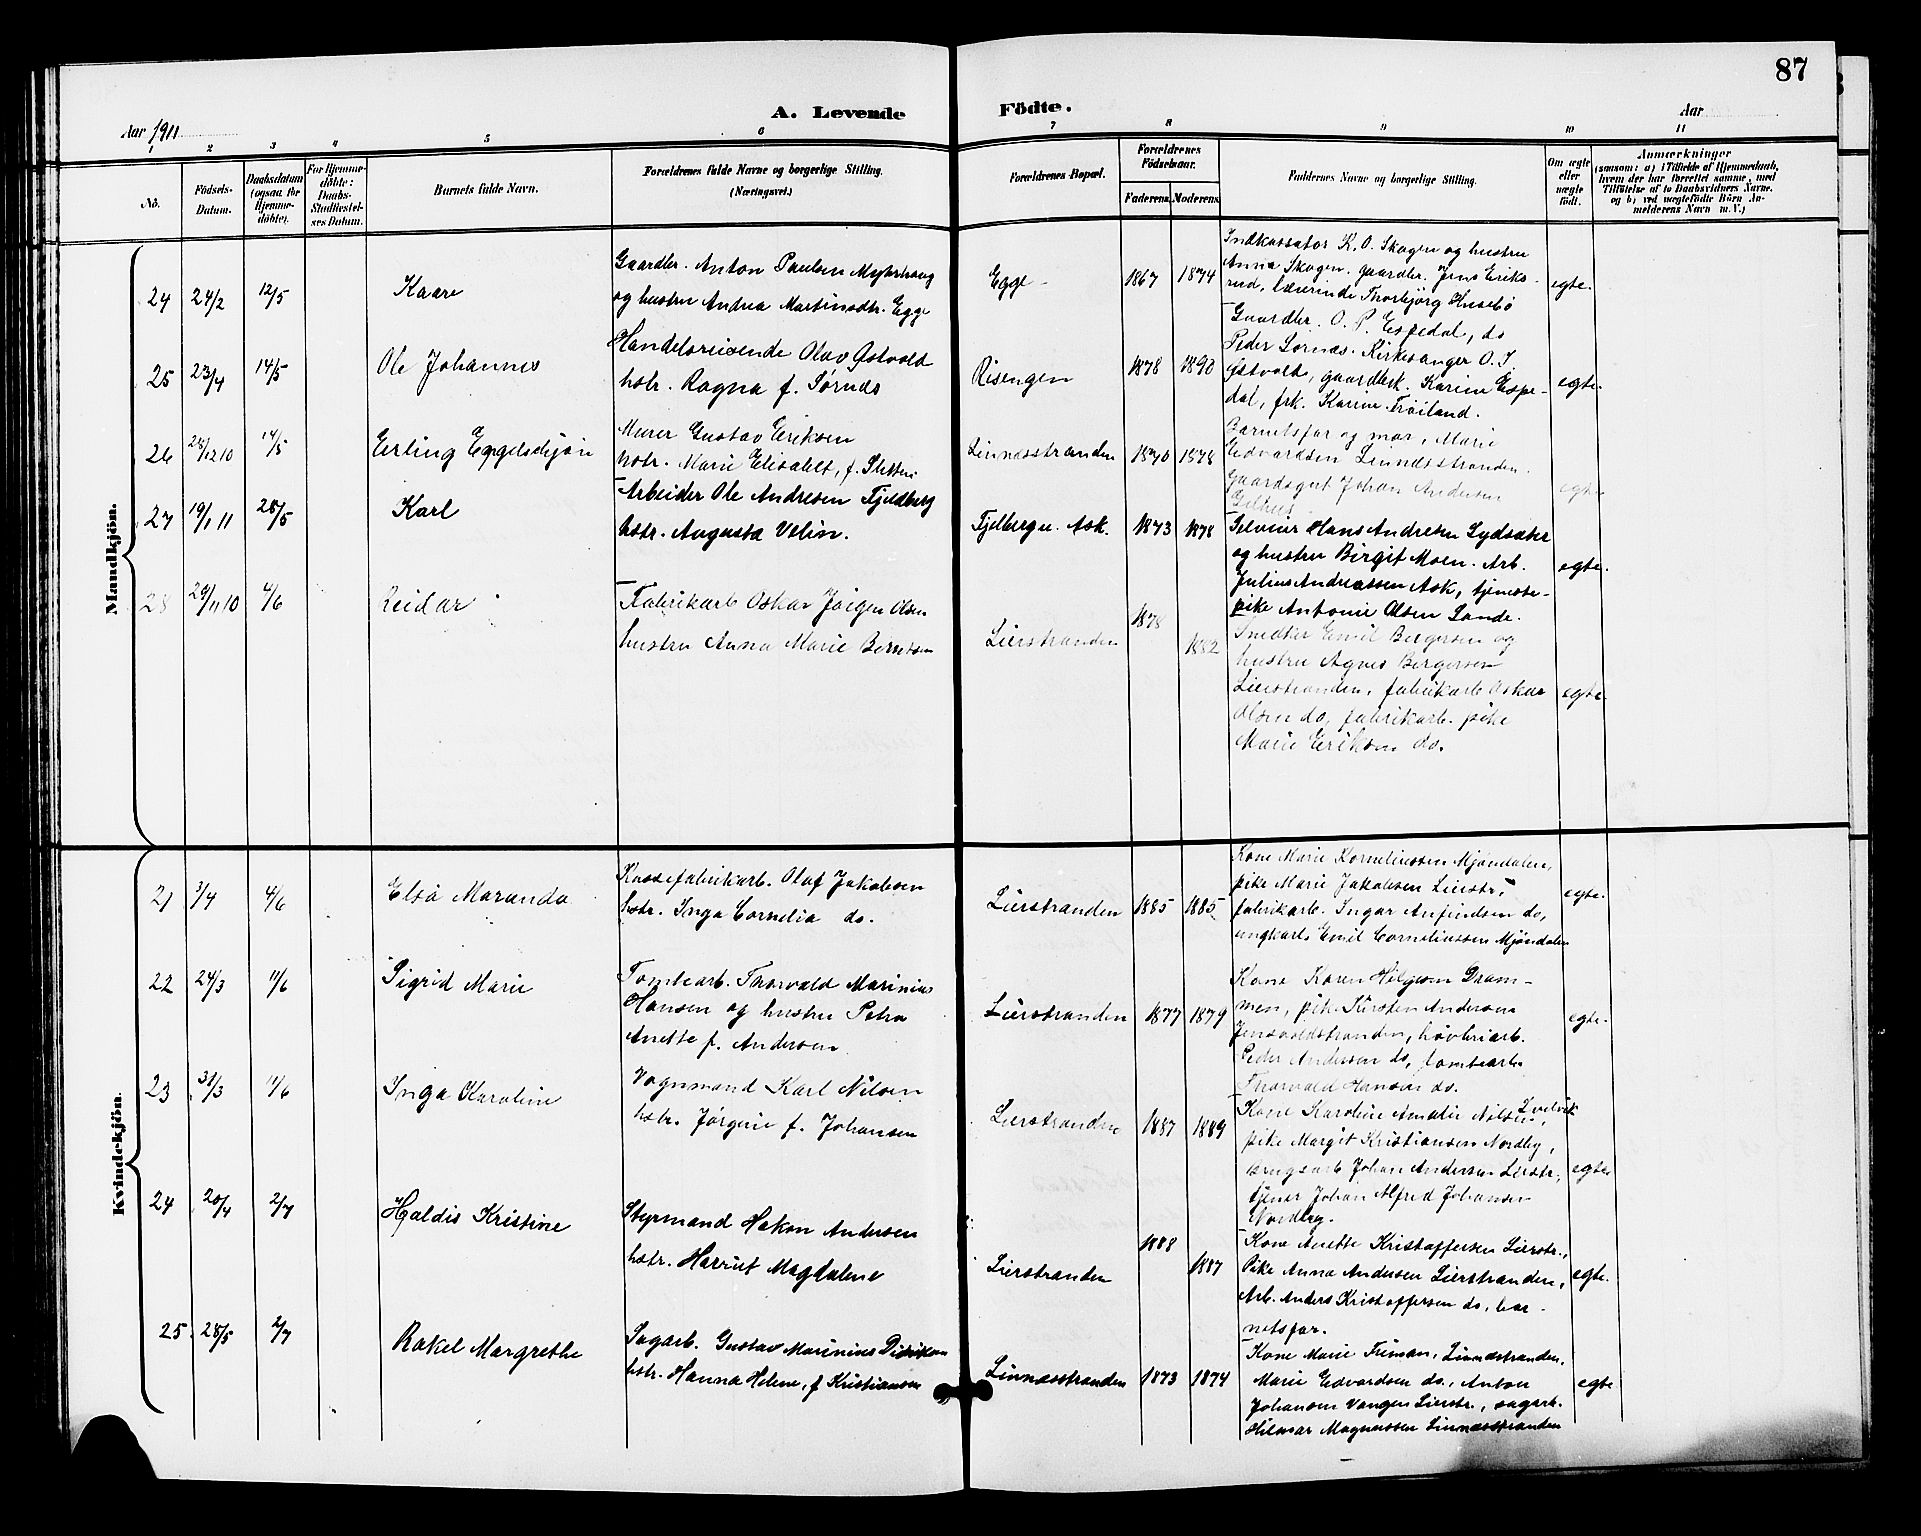 87
A. Levende Födte.
Aar 1911
Aar
1 2 3 4 5 6 7 8 9 10 11
No.
Födsels-
Datum.
Daabsdatum
(ogsaa for
Hjemme-
döbte).
For Hjemme-
döbte:
Daabs-
Stadfæstel-
ses Datum.
Barnets fulde Navn.
Forældrenes fulde Navne og borgerlige Stilling.
(Næringsvei.)
Forældrenes Bopæl.
Forældrenes
Födselsaar.
Faderens. Moderens.
Faddernes Navne og borgerlige Stilling.
Om ægte
eller
uægte
födt.
Anmærkninger
(saasom: a) i Tilfælde af Hjemmedaab,
hvem der har forrettet samme, med
Tilföielse af to Daabsvidners Navne.
og b) ved uægtefödte Börn An-
melderens Navn m. V.)
Mandkjön.
24 24/2 12/5 Kaare
Gaardbr. Anton Paulsen Myhrhaug
og hustru Andrea Martinsdtr. Egge
Egge 1867 1874
Indkassator K. O. Skogen og hustru
Anna Skogen. gaardbr. Jens Eriks-
rud, lærerinde Thorbjörg Husebö
egte.
25 23/4 14/5 Ole Johannes
Handelsreisende Olav Østvold
hstr. Ragna f. Sørnæs
Risengen 1878 1890
Gaardbr. O. P. Espedal, do
Peder Sørnæs. Kirkesanger O. J.
Østvold, gaardbrk. Karine Espe-
dal, frk. Karine Trøiland.
egte.
26 28/12 10 14/5 Erling Engelschjøn
Murer Gustav Eriksen
hstr. Marie Elisabet, f. Sletten.
Linnesstranden 1870 1878
Barnets far og mor, Marie
Edvardsen Linnesstranden.
Gaardsgut Johan Andersen
Gilhus
egte
27 19/1 11 28/5 Karl
Arbeider Ole Andresen Fjeldberg
hstr. Augusta Velin.
Fjelberg u. Ask. 1873 1878
Hans Andresen Sydsæter
og hustru Birgit Moen. Arb.
Julius Andreassen Ask, tjeneste-
pike Antonie Olsen Sande.
egte.
28 29/11 10 4/6 Reidar
Fabrikarb Oskar Jørgen Olsen
hustru Anna Marie Berntsen
Lierstranden 1878 1882
Snedker Emil Bergersen og
hustru Agnes Bergersen
Lierstranden, fabrikarb Oskar
Olsen do, fabrikarb. pike
Marie Eriksen do.
egte.
Kvindekjön.
21 3/4 4/6 Elsa Maranda
Kassefabrikarb. Olaf Jakobsen
hstr. Inga Cornelia do.
Lierstranden 1885 1885
Kone Marie Korneliussen Mjøndalen,
pike Marie Jakobsen Lierstr.,
fabrikarb. Ingar Anfindsen do,
ungkarl Emil Corneliussen Mjøndalen
egte.
22 24/3 11/6 Sigrid Marie
Tomtearb. Thorvald Marinius
Hansen og hustru Petra
Anette f. Andersen
Lierstranden 1877 1879
Kone Karen Helgesen Dram-
men, pike Kirsten Andersen
Jensvoldstranden, høvleriarb.
Peder Andersen do, tomtearb
Thorvald Hansen do.
egte.
23 31/3 11/6 Inga Karoline
Vognmand Karl Nilsen
hstr. Jørgine f. Johansen
Lierstranden 1887 1889
Kone Karoline Amalie Nilsen, Svelvik
pike Margit Kristiansen Nordby,
brugsarb Johan Andersen Lierstr.,
tjener Johan Alfred Johansen
Nordby.
egte
24 20/4 2/7 Haldis Kristine
Styrmand Hakon Andersen
hstr. Harriet Magdalene
Lierstranden 1888 1887
Kone Anette Kristoffersen Lierstr.,
Pike Anna Andersen Lierstranden,
Arb. Anders Kristoffersen do, bar-
netsfar.
egte.
25 28/5 2/7 Rakel Margrethe
Sagarb. Gustav Marinius Didriksen
hstr. Hanna Helene, f Kristiansen
Linnesstranden 1873 1874
Kone Marie Friman, Linnesstranden.
Marie Edvardsen do., Anton
Johansen Vangen Lierstr., sagarb.
Hilmar Magnussen Linnesstranden
egte